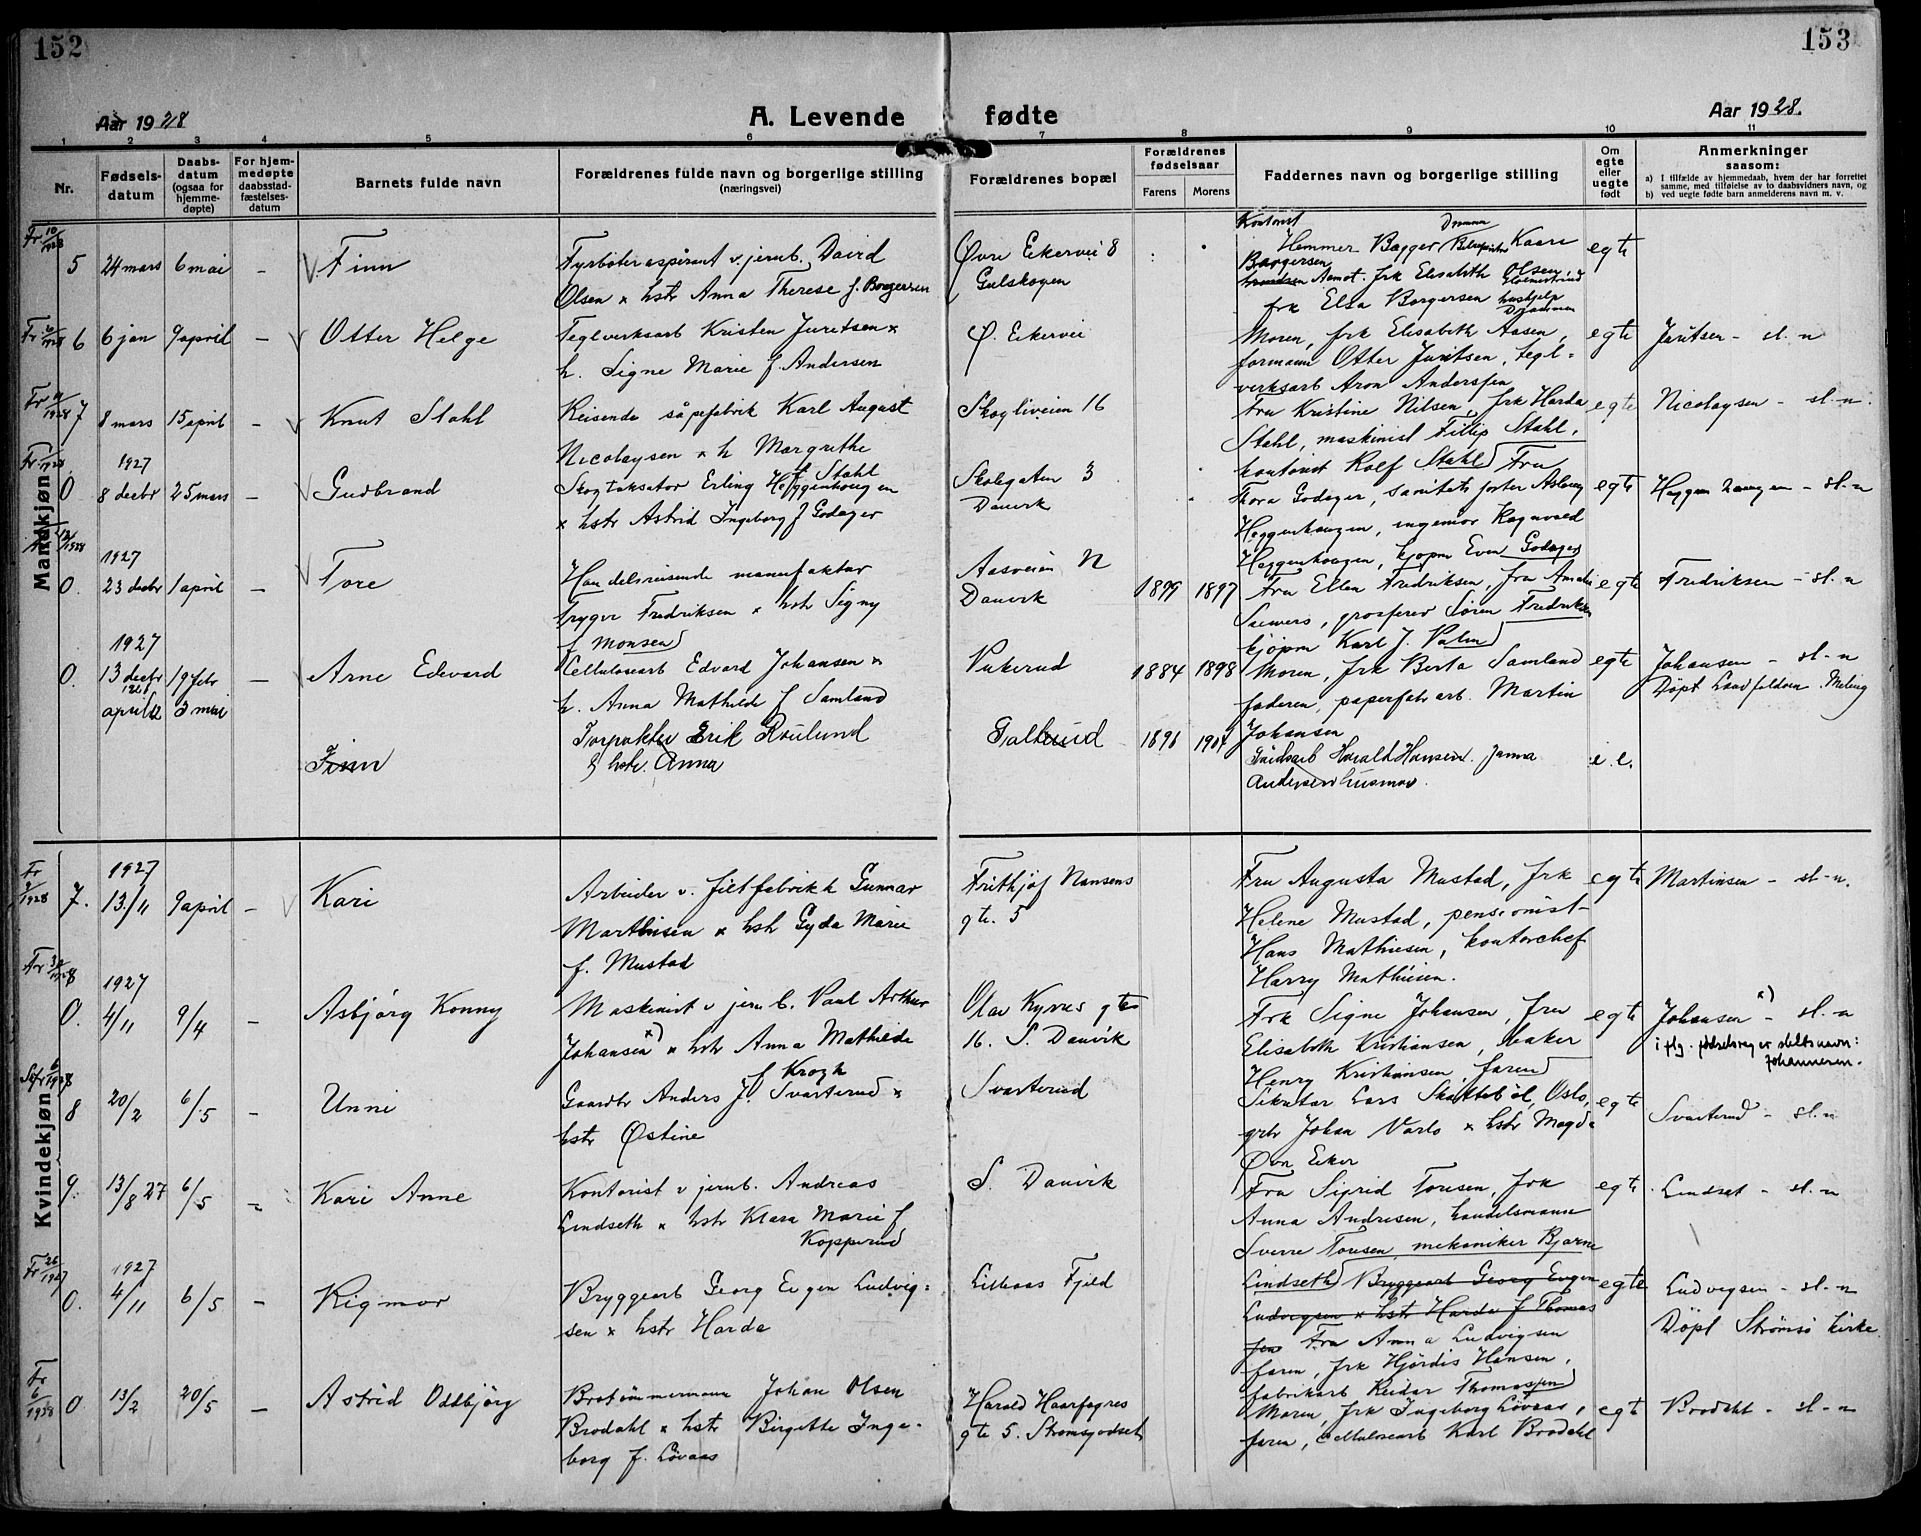 152
153
Aar 1928
A. Levende fødte
Aar 1928.
1 2 3 4 5 6 7 8 9 10 11
Nr.
Fødselsdatum
Daabsdatum (ogsaa for hjemmedøpte)
For hjemmedøpte daabsstadfæstelsesdatum
Barnets fulde navn
Forældrenes fulde navn og borgerlige stilling
(næringsvei)
Forældrenes bopæl
Forældrenes fødselsaar
Farens Morens
Faddernes navn og borgerlige stilling
Om egte eller uegte født
Anmerkninger
saasom:
a) I tilfælde av hjemmedaab, hvem der har forrettet samme, med tilføielse av to daabsvidners navn, og
b) ved uegte fødte barn anmelderens navn m. v.
Mandkjøn
Fr 10/1928
5 24 mars 6 mai - Finn
Fyrbøteraspirant v. jernb. David
Olsen × hstr Anna Therese f. Borgersen
Øvre Eikervei 8
Gulskogen
Kontorist
Hemmer Bagger Kaare
Borgersen
Aamot. frk Elisabeth Olsen,
frk Elsa Borgersen
egte
6 6 jan 9 april - Otter Helge
Teglverksarb Kristen Juritsen ×
h. Signe Marie f. Andersen
Ø. Eikervei
Moren, frk Elisabeth Aasen,
formann Otter Juritsen, tegl=
verksarb Aron Anderssen
egte
Juritsen - sl.n
7 8 mars 15 april - Knut Stahl
Reisende såpefabrik Karl August
Nicolaysen × h Margrethe
f Stahl
Skogliveien 16
Fru Kristine Nilsen, frk Harda
Stahl, maskinist Fillip Stahl,
kontorist Rolf Stahl
egte
Nicolaysen - sl.n.
1927
0 8 decbr 25 mars - Gudbrand
Skogtaksator Erling Heggenhougen
× hstr Astrid Ingeborg f Godager
Skolegaten 3
Danvik
Fru
Thora Godager, sanitets søster Aslaug
Heggenhougen, ingeniør Ragnvald
Heggenhougen, kjøpm Even Godager
egte
Heggenhougen - sl.n
1927
0. 23 decbr 1 april - Tore
Handelsreisende manufaktur
Trygve Fredriksen × hstr Signy
f Monsen
Aasveien N
Danvik
1899 1897
Fru Ellen Fredriksen, fru Amalie
Siewers, grosserer Søren Fredriksen
kjøpm Karl J. Palm
egte
Fredriksen - sl.n
1927
0. 13 decbr 19 febr - Arne Edevard
Cellulosearb Edvard Johansen ×
h. Anna Mathilde f Samland
Vukerud
1884 1898
Moren, frk Berta Samland
faderen, paperfabr arb. Martin
Johansen
egte
Johansen - sl.n
Døpt Landfalden. Meling
april 12 3 mai
Finn
Forpakter Erik Roulund
& hstr. Anna
Galterud
1896 1904
Gårdsarb Harald Hansen. Janna
Andersen husmor.
e. e.
Kvindekjøn
Fr 9/1928
1927
7. 13/11 9 april - Kari
Arbeider v. filtfabrikk Gunnar
Marthinsen × hstr Gyda Marie
f. Mustad
Frithjof Nansens
gt. 5
Fru Augusta Mustad, frk
Helene Mustad, pensionist
Hans Mathiesen, kontorchef
Harry Mathiesen.
egte
Martinsen - sl-n.
1927
0. 4/11 9/4 - Asbjørg Konny
Maskinist v jernb. Paul Arthur
Johansen ×) × hstr Anna Mathilde
f Krogh
Olav Kyrres gte
16. S. Danvik
Frk Signe Johansen, fru
Elisabeth Kristiansen, baker
Henry Kristiansen, faren
egte
Johansen ×) - sl.n
i flg. fødselsreg er slektsnavn:
Johannesen.
8 20/2 6/5 - Unni
Gaardbr Anders J Svarterud ×
hstr Østine
Svarterud
Sekretær Lars Skattebøl, Oslo,
grbr Johan Varlo × hstr Magda
Øvre Eiker
egte
Svarterud - sl.n
9. 13/8 27 6/5 - Kari Anne
Kontorist v jernb. Andreas
Lindseth × hstr Klara Marie f.
Kopperud
S. Danvik
Fru Sigrid Toresen, frk
Anna Andresen, handelsmann
Sverre Toresen, mekaniker Bjarne
Lindseth
egte
Lindset - sl.n
Fr 26/1927
1927
0. 4/11 6/5 - Rigmor
Bryggearb Georg Eugen Ludvig=
sen × hstr Harda
Lilleaas Fjeld
Bryggearb Georg Eugen
Ludvigsen × hstr Harda f Thomas
sen Fru Anna Ludvigsen
faren, frk Hjørdis Hansen,
fabrikarb Reidar Thomassen
egte
Ludvigsen - sl.n
Døpt Strømsø kirke
Fr 6/1928
0 13/2 20/5 - Astrid Oddbjørg
Brotømmermann Johan Olsen
Brodahl × hstr Birgitte Inge-
borg f. Løvaas
Harald Haarfagres
gte 5. Strømsgodset
Moren, frk Ingeborg Løvaas,
faren, cellulosearb Karl Brodahl
egte
Brodahl - sl-n